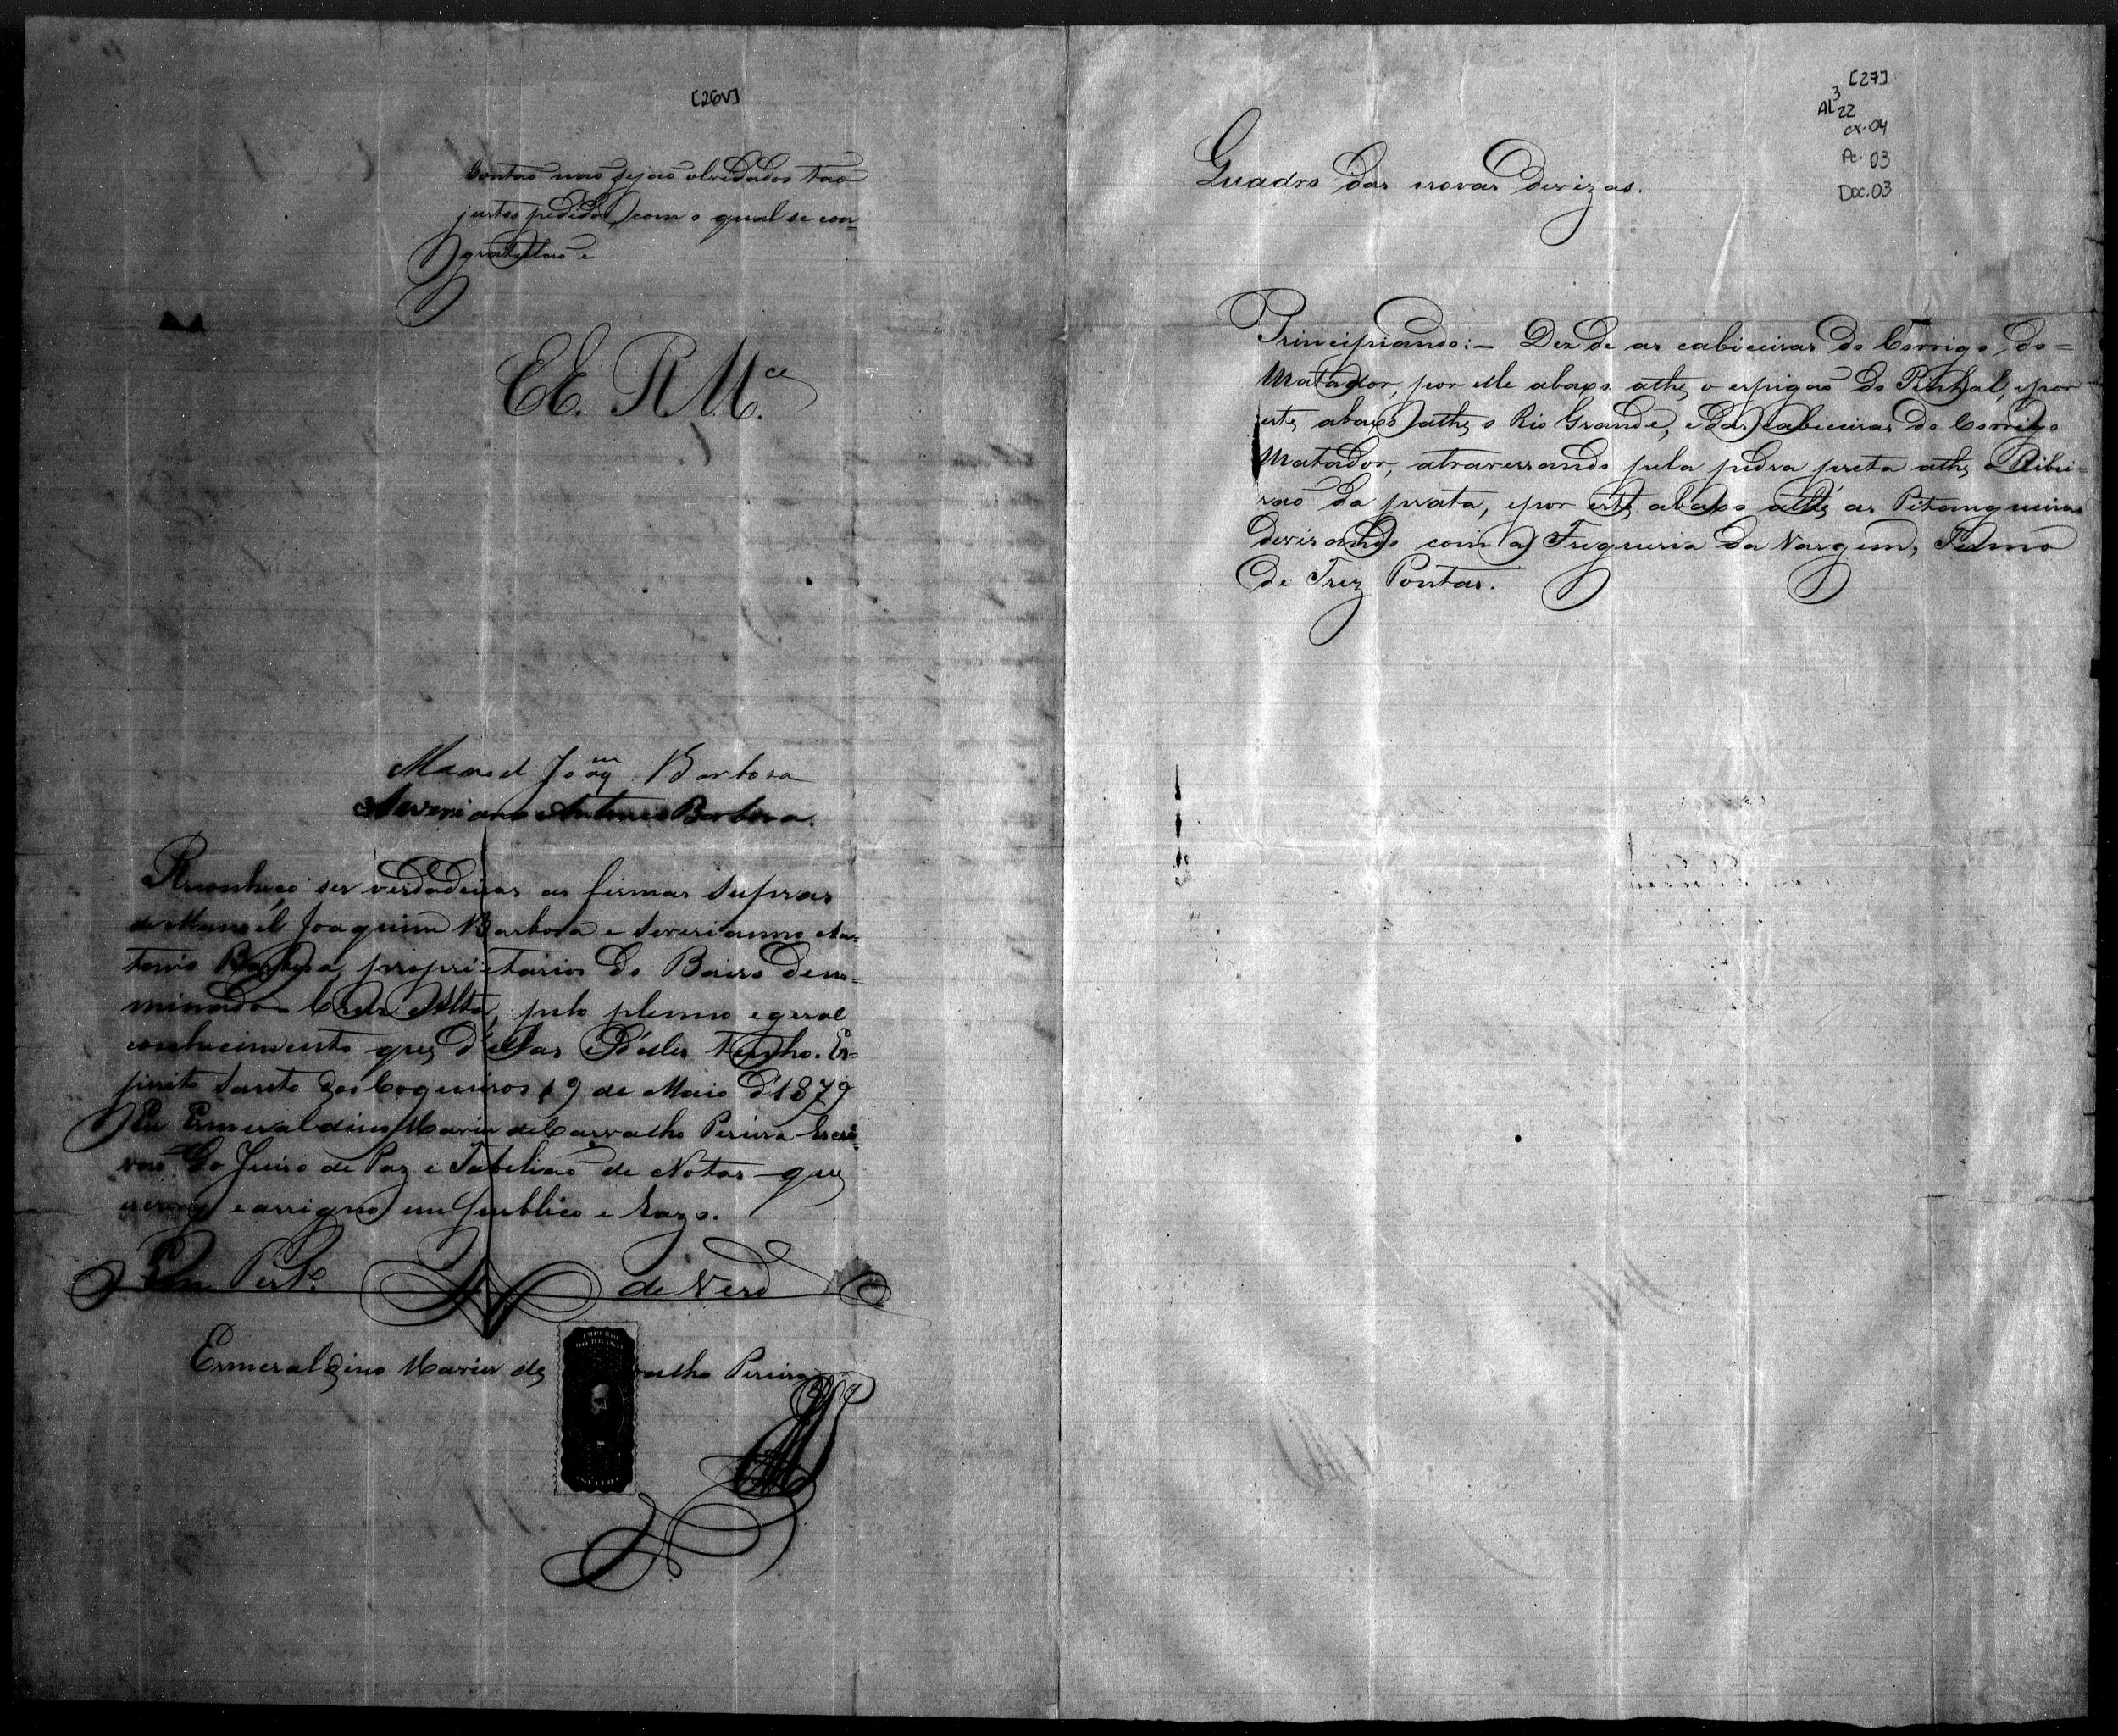 [26v]
Contão não sejão olvidados tão
justos pedidos, com o qual se con=
gratulão e
EE. R M.ce
Manoel Joaqm Barbosa
Severiano Antonio Barbosa.
Reconheço ser verdadeiras as firmas supras
de Manoel Joaquim Barbosa e Severianno An=
tonio Barbosa, proprietarios do Bairo deno=
minado Cruz Alta, pelo plenno e geral
conhecimento que d'ellas e d'elles tenho. Es=
pirito Santo dos Coqueiros 19 de Maio d'1879
Eu Esmeraldino Maria de Carvalho Pereira Escri=
vão do Juiso de Paz e Tabelião de Notas que
escrevy e assigno em publico e razo.
Em Test.o de Verd
Esmeraldino Maria de valho Pereira
IMPERIO
DO BRASIL
[27]
AL 3 22
cx. 04
Pc. 03
Doc. 03
Quadro das novas devizas.
Principiando:- Dez de as cabiceiras do Corrigo, do=
Matador, por elle abaxo athe o espigão do Pinhal, e por
este abaxo athe o Rio Grande, e das cabiceiras do Corrigo
Matador, atravessando pela pedra preta athe o Ribei=
rão da prata, e por este abaxo athé as Pitangueiras
devisando com a Fregueria da Vargem, Termo
de Trez Pontas.